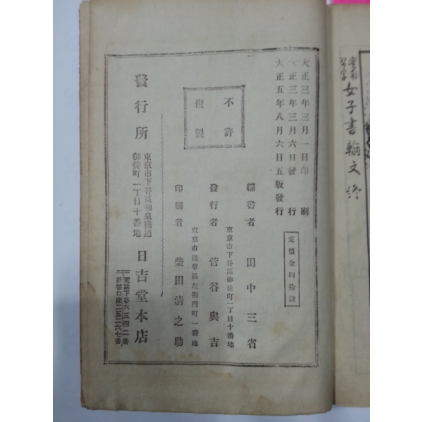 女子書翰文 終
大正三年三月一日印刷
大正三年三月六日發行
大正五年八月六日五版發行
定價金四拾錢
不許
複製
編書者 田中三省
東京市下谷區御徒町一丁目十番地
發行者 菅谷與吉
印刷者 柴田清之助
發行所
東京市下谷區和泉橋通
御徒町一丁目十番地
日吉堂本店